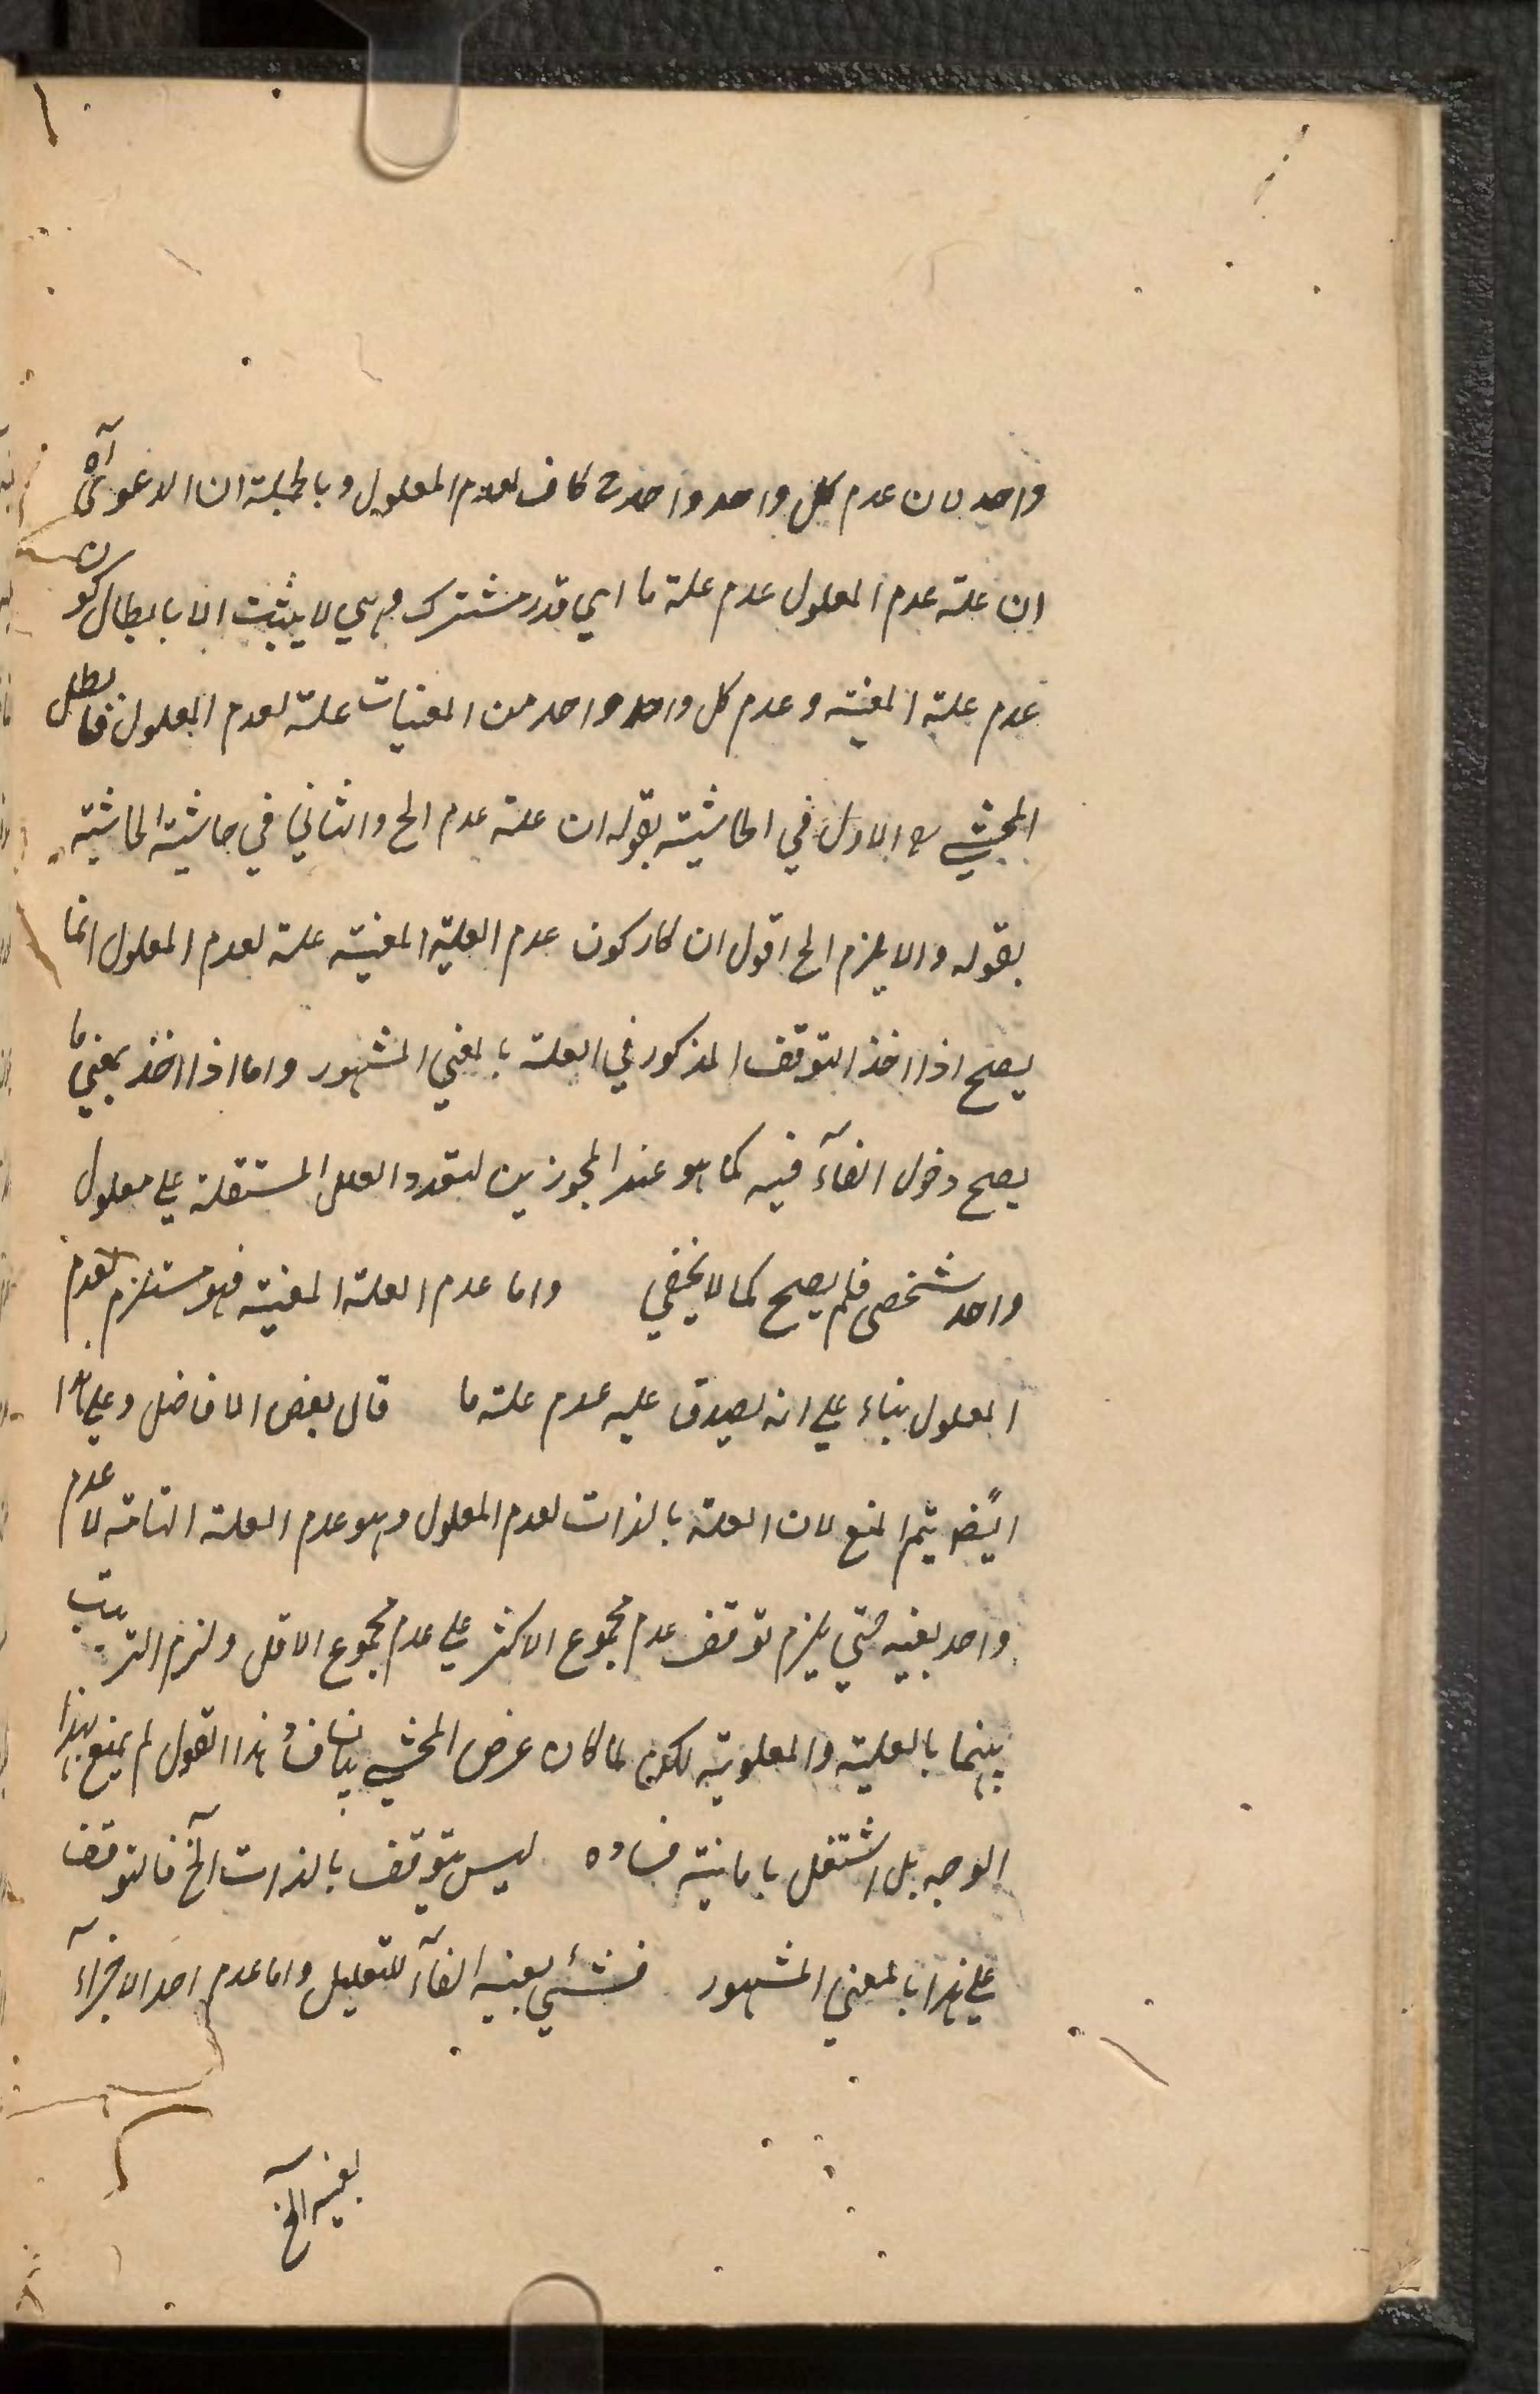 واحد لان عدم كل واحد واحد ح كاف لعدم المعلول وبالجملة ان الدعوى آه
ان علة عدم المعلول عدم علة ما اي قدر مشترك وهي لا يثبت الا بابطال كون
عدم علة المعينة وعدم كل واحد واحد من المعينات علة لعدم المعلول فابطل
المحشي الاول في الحاشية بقوله ان علة عدم الخ والثاني في حاشية الحاشية
بقوله والا يلزم الخ اقول انكار كون عدم العلية المعينة علة لعدم المعلول انما
يصح اذا اخذ التوقف المذكور في العلة بالمعني المشهور واما اذا اخذ بمعني ما
يصح دخول الفآء فيه كما هو عند المجوزين لتعدد العلل المستقلة علي معلول
واحد شخصي فلم يصح كما لا يخفي واما عدم العلة المعينة فهو مستلزم لعدم
المعلول بناء علي انه يصدق عليه عدم علة ما قال بعض الافاضل وعلي هذا
ايضً يتم المنع لان العلة بالذات لعدم المعلول وهو عدم العلة التامة لا عدم
واحد بعينه حتي يلزم توقف عدم مجموع الاكثر علي عدم مجموع الاقل ولزم الترتيب
بينهما بالعلية والمعلولية لكن لما كان غرض المحشي بيان فساد هذا القول لم يمنع بهذا
الوجه بل اشتغل بابانية فساده ليس بتوقف بالذات آلخ فالتوقف
علي هذا بالمعني المشهور فشئي بعينه الفآء للتعليل واما عدم احد الاجزآء
بعينه آلخ